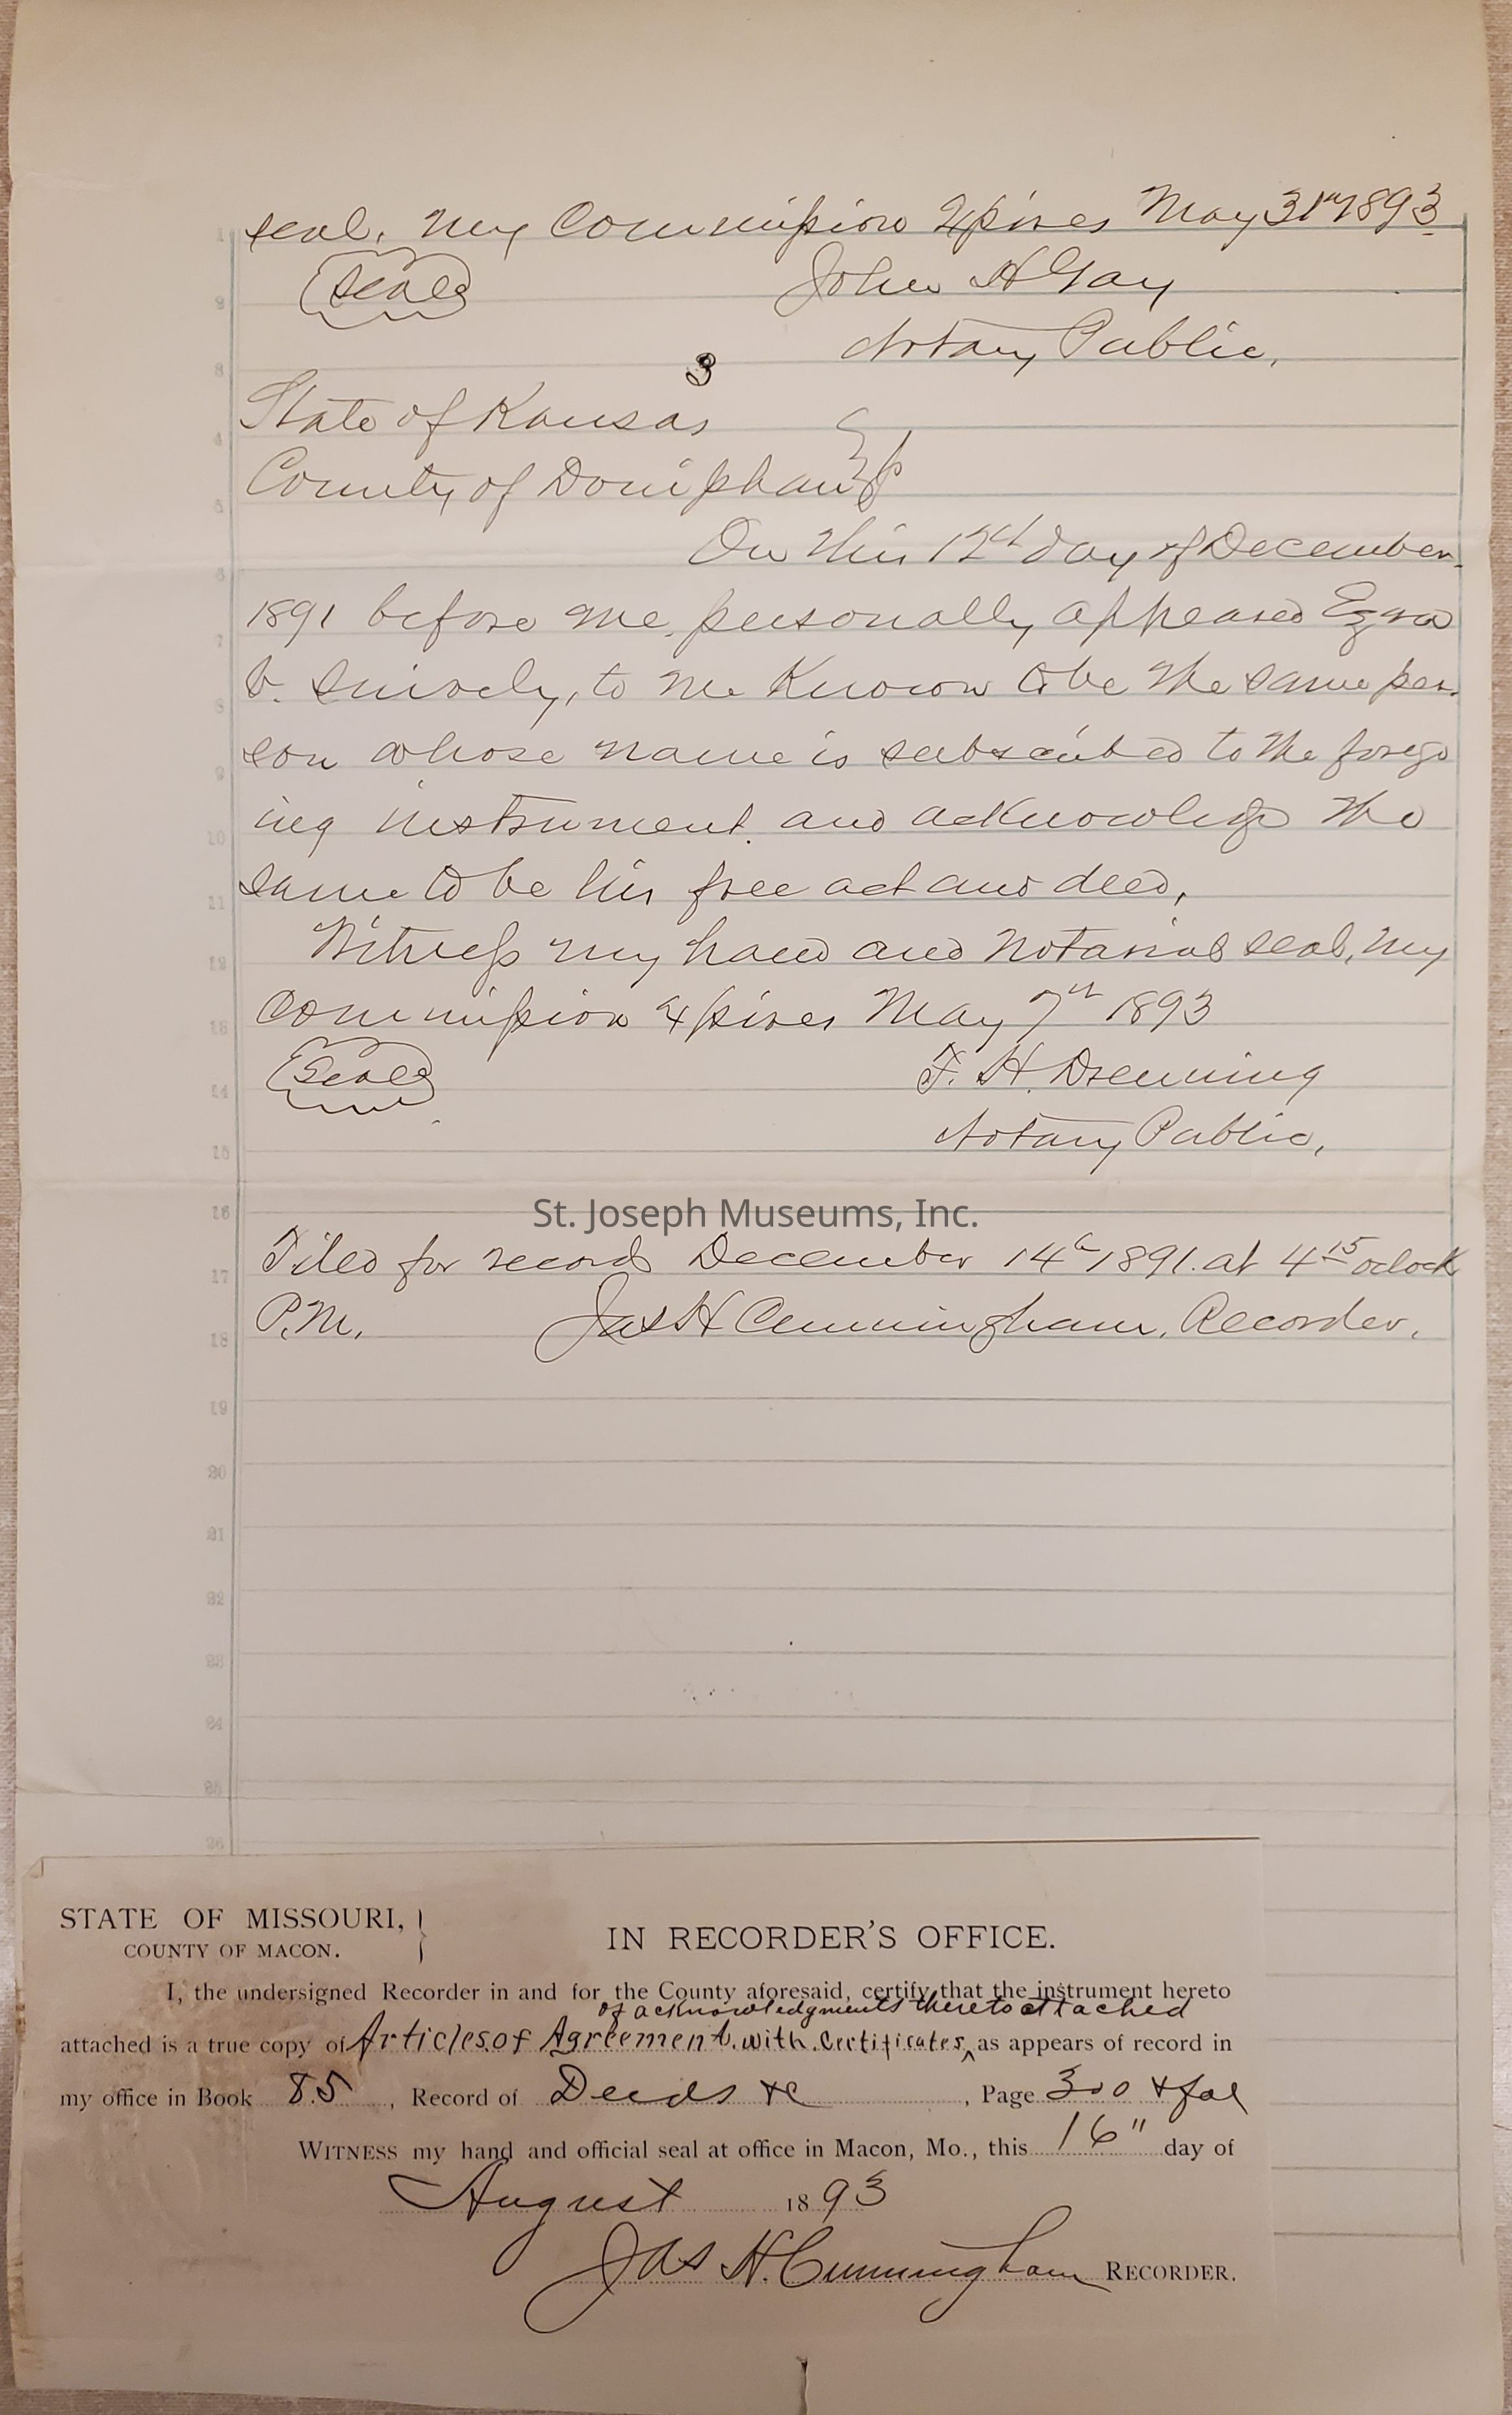 seal. My Commission Expires May 31st 1893
(Seal) John H Gay
Notary Public,
3
State of Kansas
County of Doniphan } ss
On this 12th day of December
1891 before me personally appeared Ezra
B. Snively, to me Known to be the same per-
son whose name is subscribed to the forego
ing instrument and acknowledge the
same to be his free act and deed,
Witness my hand and Notarial seal, My
Commission Expires May 7th 1893
(Seal) F. H. Drenning
Notary Public,
St. Joseph Museums, Inc.
Filed for record December 14th 1891. at 4 15 oclock
P.M. Jas H Cunningham, Recorder,
1
2
3
4
5
6
7
8
9
10
11
12
13
14
15
16
17
18
19
20
21
22
23
24
25
26
STATE OF MISSOURI, }
COUNTY OF MACON.
IN RECORDER'S OFFICE.
I, the undersigned Recorder in and for the County aforesaid, certify that the instrument hereto
of acknowledgments thereto attached
attached is a true copy of Articles of Agreement with Certificates ^ as appears of record in
my office in Book 85, Record of Deeds &c, Page 300 & fol
WITNESS my hand and official seal at office in Macon, Mo., this 16" day of
August 1893
Jas H. Cunningham RECORDER.